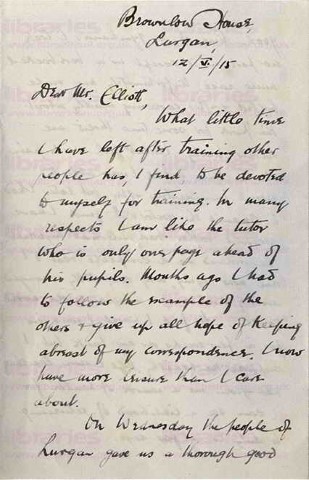 Brownlow House,
Lurgan,
12/VI/15
Dear Mr. Elliott,
What little time
I have left after training other
people has, I find, to be devoted
to myself for training. In many
respects I am like the tutor
who is only one page ahead of
his pupils. Months ago I had
to follow the example of the
others & give up all hope of keeping
abreast of my correspondence. I now
have more than I care
about.
On Wednesday the people of
Lurgan gave us a thorough good